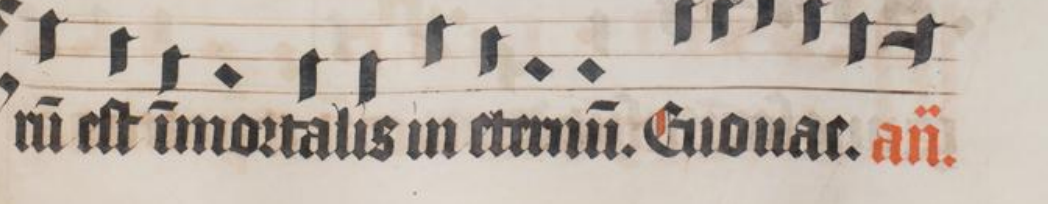 rū est īmortalis in eternū. Euouae. an̄.